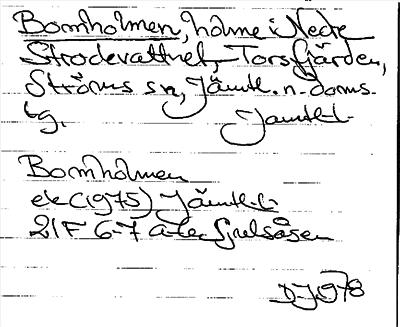 Bornholmen, holme i Nedre
Strödevattnet, Torsfjärden,
Ströms sn, Jämtl. n. doms.
Jämtl. l.
Bornholmen
ek (1975) Jämtl. l.
21F 6-7
1978